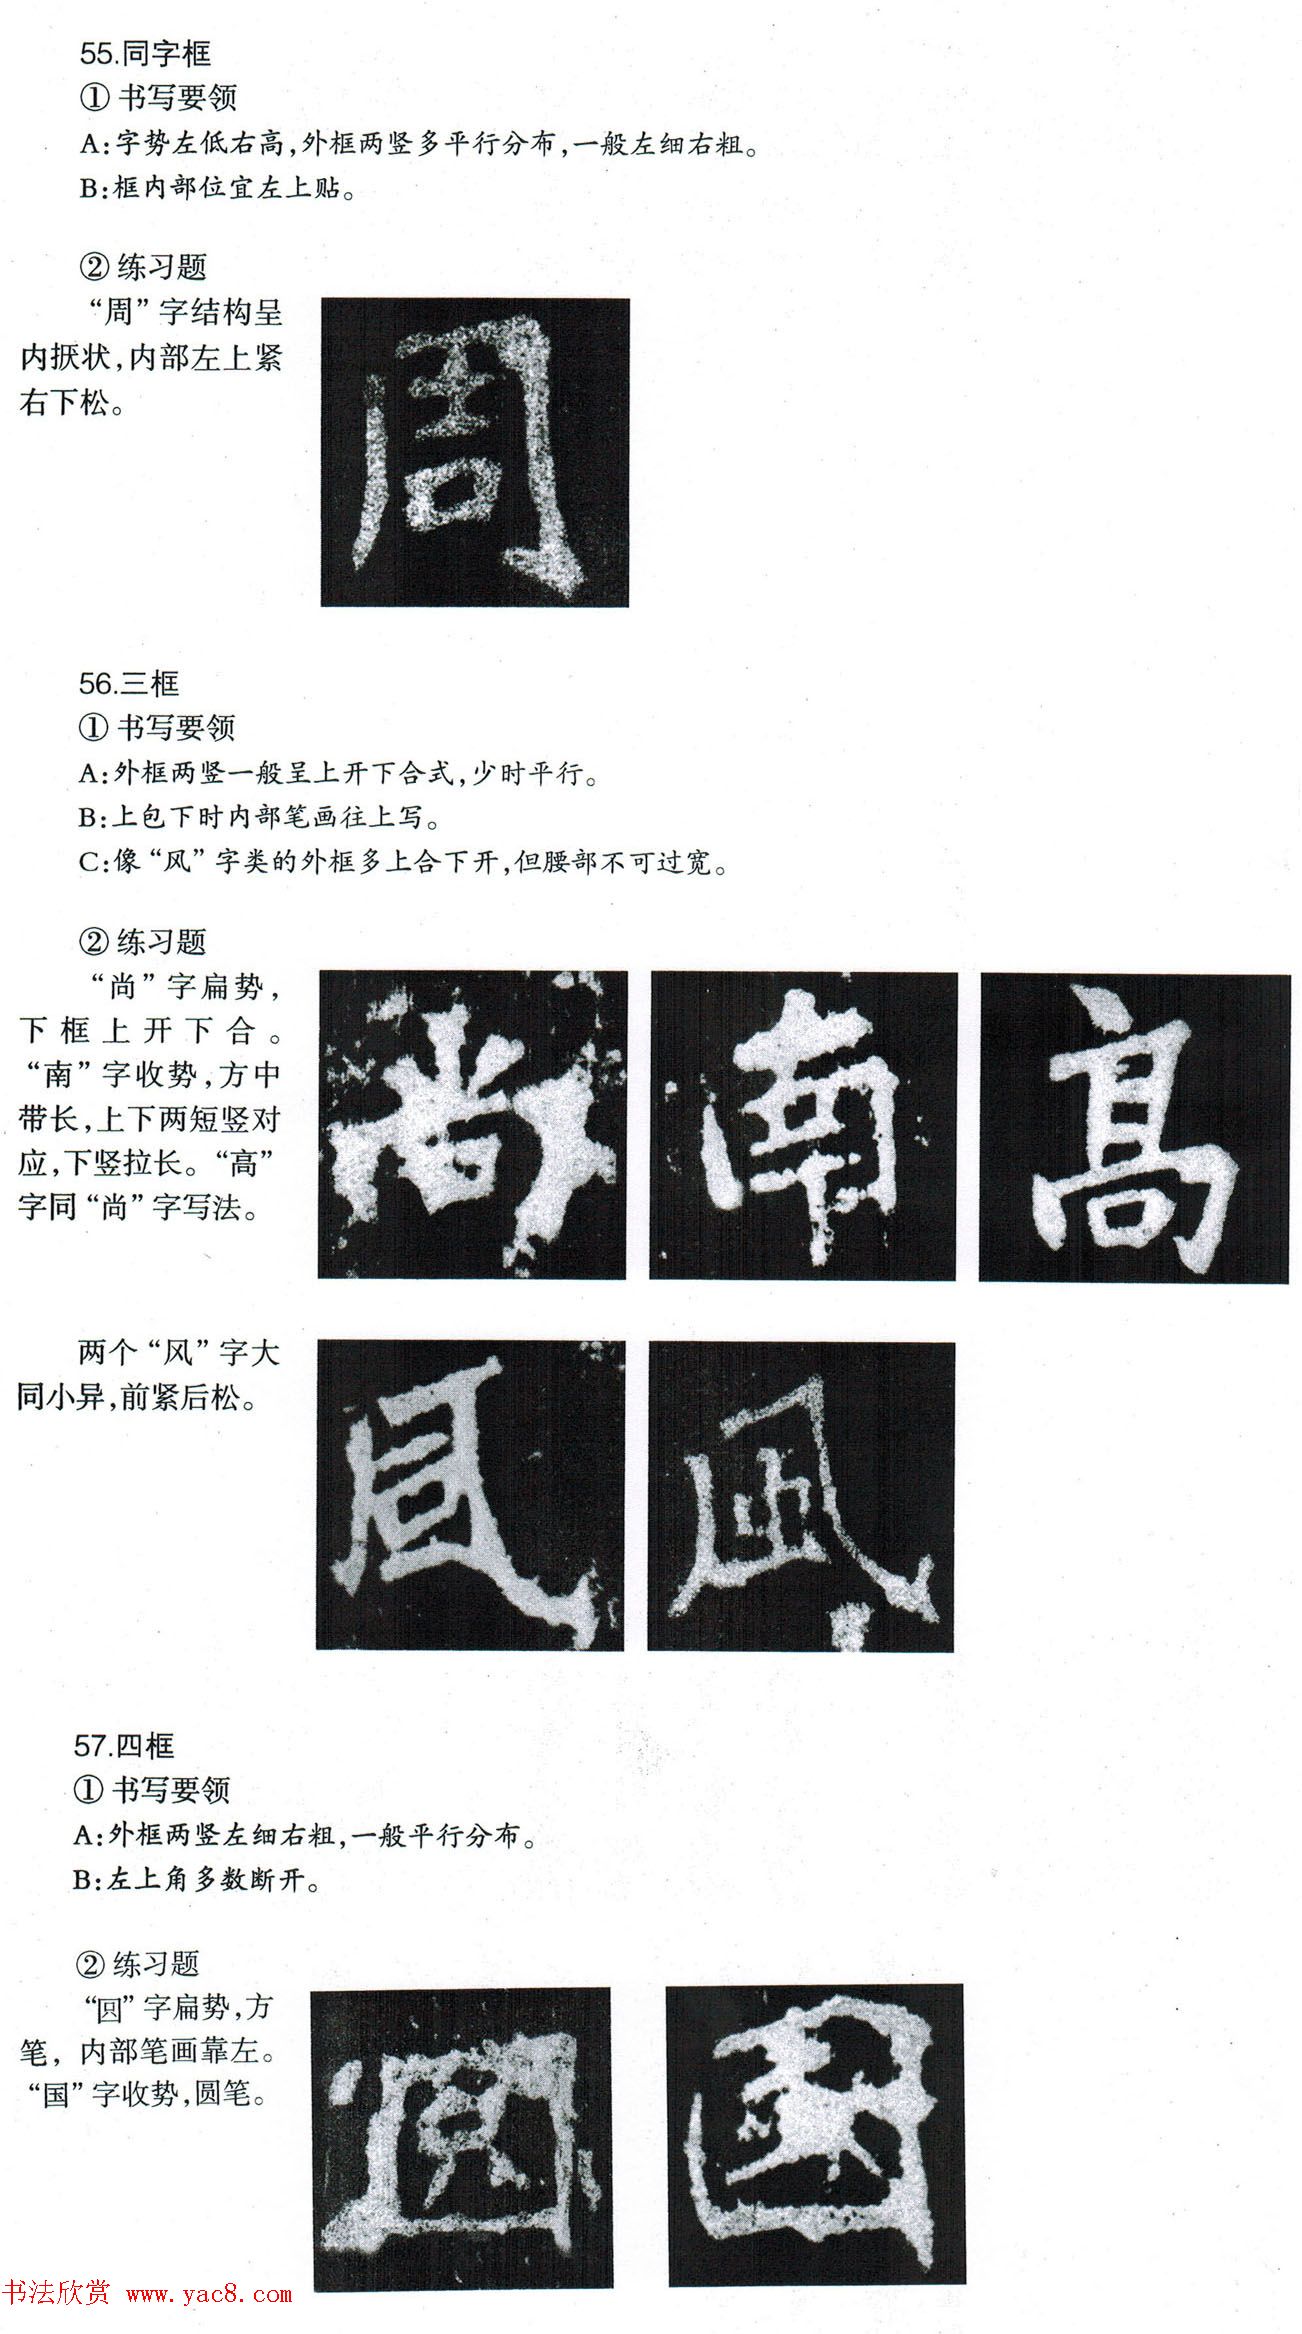 55.同字框
① 书写要领
A:字势左低右高,外框两竖多平行分布,一般左细右粗。
B:框内部位宜左上贴。
② 练习题
“周”字结构呈
内抠状,内部左上紧
右下松。
周
56.三框
① 书写要领
A:外框两竖一般呈上开下合式,少时平行。
B:上包下时内部笔画往上写。
C:像“风”字类的外框多上合下开,但腰部不可过宽。
② 练习题
“尚”字扁势,
下框上开下合。
“南”字收势,方中
带长,上下两短竖对
应,下竖拉长。“高”
字同“尚”字写法。
尚 南 高
两个“风”字大
同小异,前紧后松。
57.四框
① 书写要领
A:外框两竖左细右粗,一般平行分布。
B:左上角多数断开。
② 练习题
“囩”字扁势,方
笔,内部笔画靠左。
“国”字收势,圆笔。
國
书法欣赏 www.yac8.com